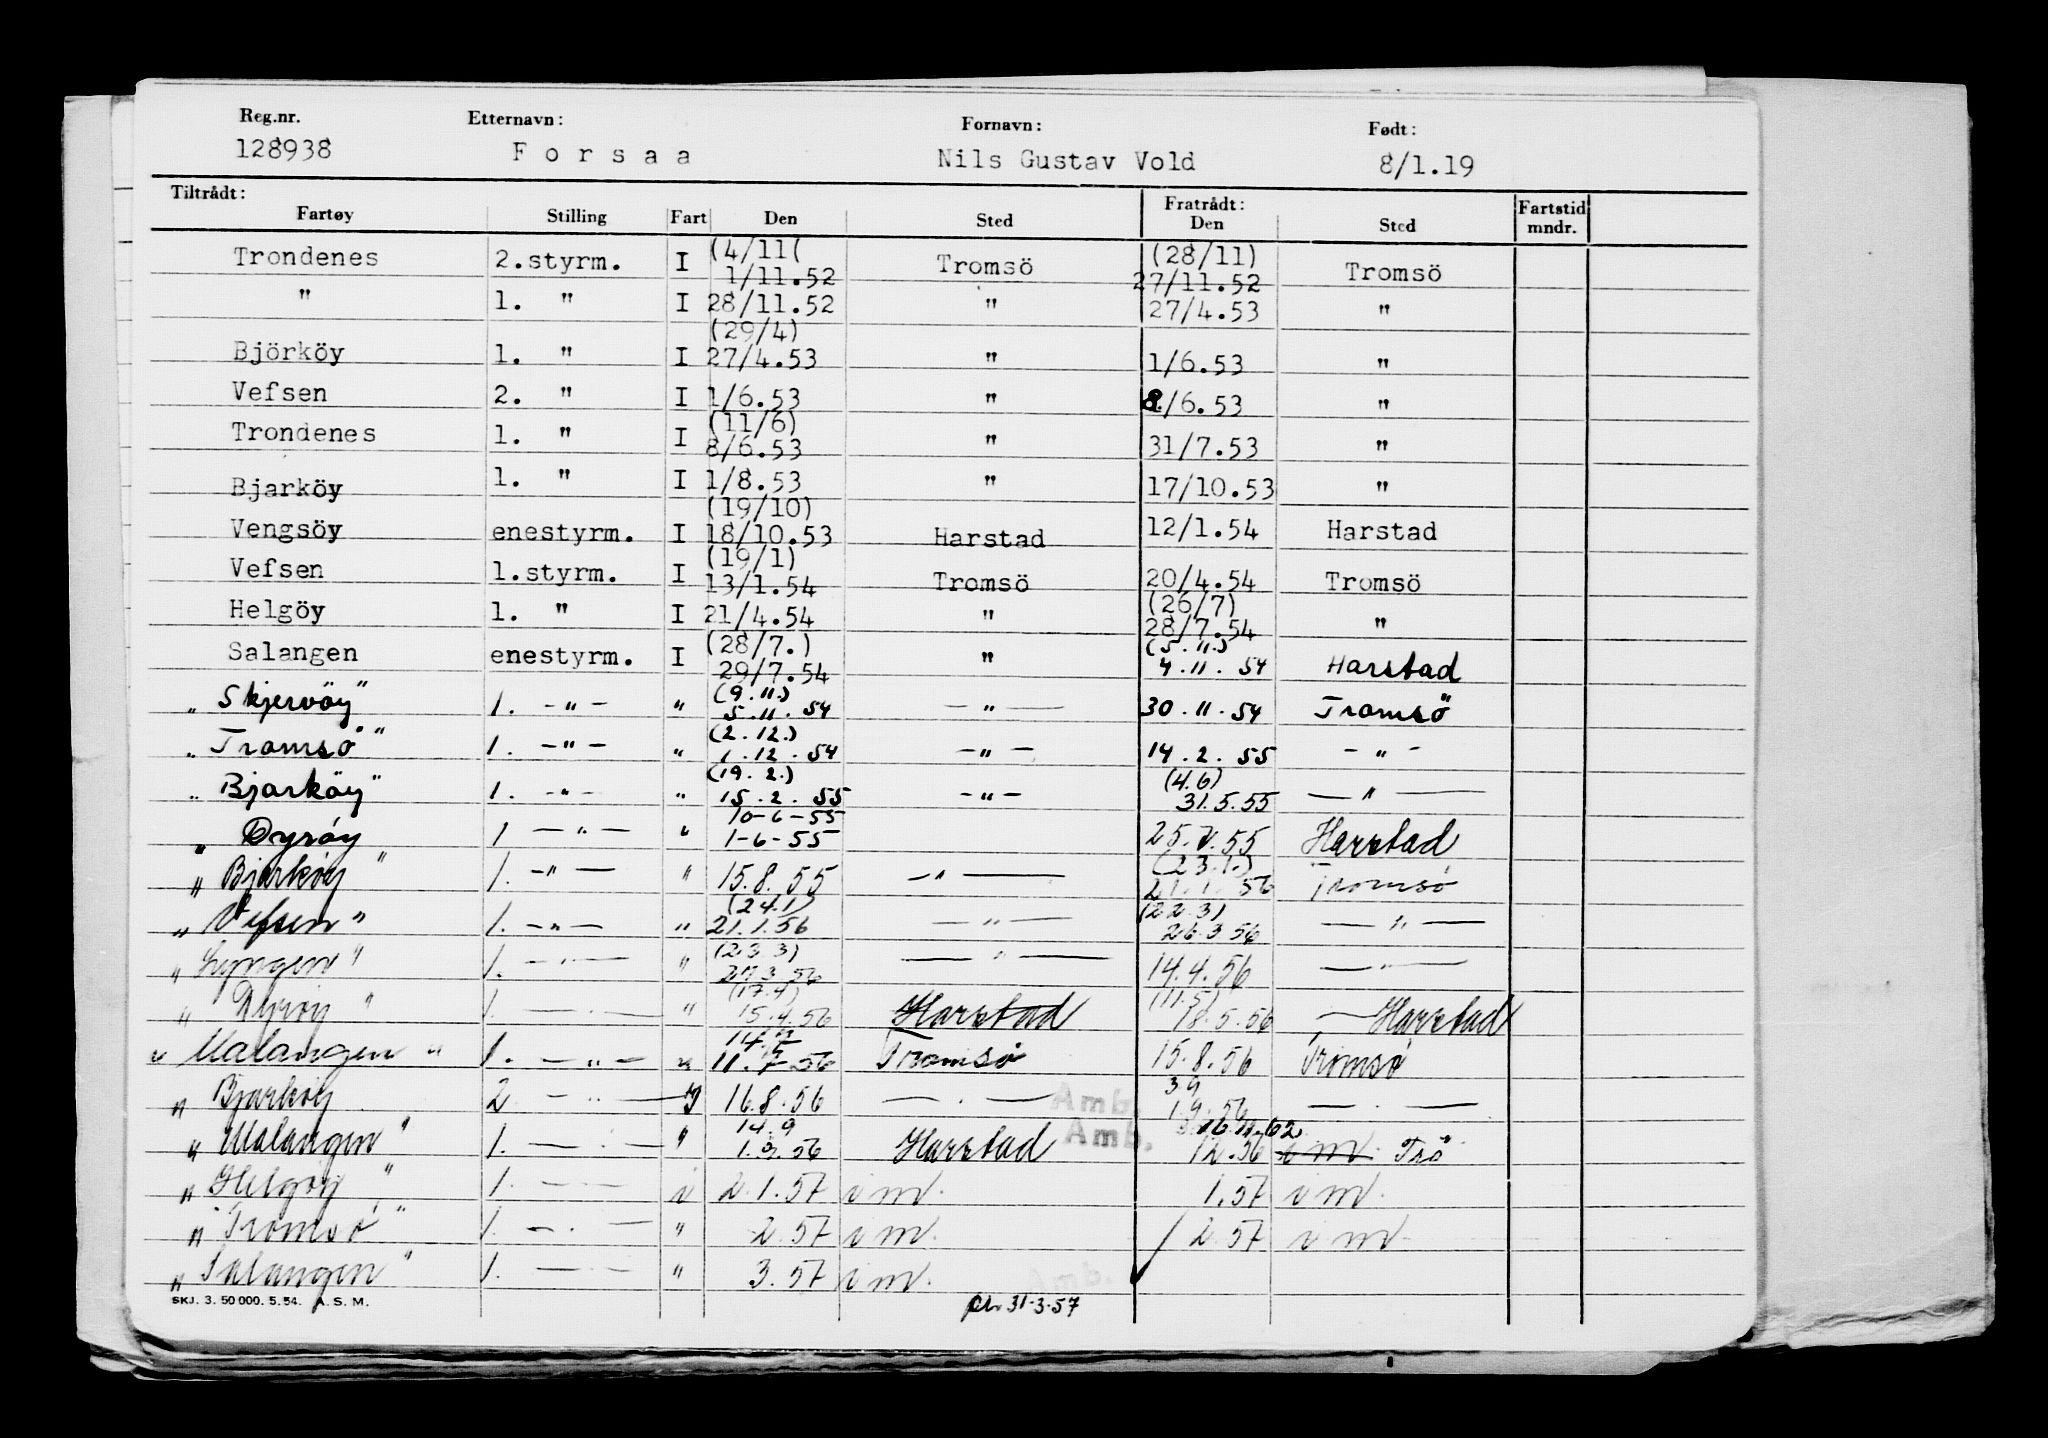 Reg.nr. Etternavn: Fornavn: Født:
128938 Forsaa Nils Gustav Vold 8/1.19
Tiltrådt: Fratrådt:
Fartøy Stilling Fart Den Sted Den Sted Fartstid mndr.
Trondenes 2.styrm. I (4/11( 1/11.52 Tromsö (28/11) 27/11.52 Tromsö
" 1. " I 28/11.52 " 27/4.53 "
Björköy 1. " I (29/4) 27/4.53 " 1/6.53 "
Vefsen 2. " I 1/6.53 " 8/6.53 "
Trondenes 1. " I (11/6) 8/6.53 " 31/7.53 "
Bjarköy 1. " I 1/8.53 " 17/10.53 "
Vengsöy enestyrm. I (19/10) 18/10.53 Harstad 12/1.54 Harstad
Vefsen 1.styrm. I (19/1) 13/1.54 Tromsö 20/4.54 Tromsö
Helgöy 1. " I 21/4.54 " (26/7) 28/7.54 "
Salangen enestyrm. I (28/7.) 29/7.54 " (5.11.) 4.11.54 Harstad
"Skjervöy" 1. -"- " (9.11.) 5.11.54 -"- 30.11.54 Tromsö
"Tromsö" 1. -"- " (2.12.) 1.12.54 -"- 14.2.55 -"-
"Bjarköy" 1. -"- " (19.2.) 15.2.55 -"- (4.6) 31.5.55 -"-
" Dyröy 1 -"- " 10-6-55 1-6-55 25.7.55 Harstad
"Bjarköy" 1. -"- " 15.8.55 -"- (23.1.) 21.1.56 Tromsö
"Vefsen" 1. -"- " (24.1) 21.1.56 -"- (22.3) 26.3.56 -"-
"Lyngen" 1. -"- " (23.3) 27.3.56 -"- 14.4.56 -"-
"Dyröy" 1. -"- " (17.4) 15.4.56 Harstad (11.5) 18.5.56 Harstad
"Malangen" 1. -"- " 11.7.56 Tromsö 15.8.56 Tromsö
" Bjarköy 2 -"- I 16.8.56 -"- Amb. 3.9 1.9.56 -"-
"Malangen" 1. -"- " 14.9 1.9.56 Harstad Amb. 12.56 i m. Trö
"Helgöy" 1. -"- i 2.1.57 i m. 1.57 i m.
"Tromsö" 1. -"- " 2.57 i m. 2.57 i m.
"Salangen" 1. -"- " 3.57 i m. Amb.
SKJ. 3. 50 000. 5. 54. A. S. M. 31-3-57